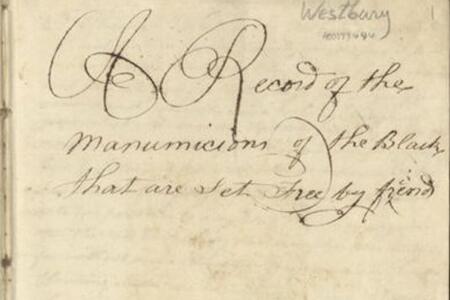 Westbury
1
A Record of the
Manumicions of the Black
that are Set Free by friend